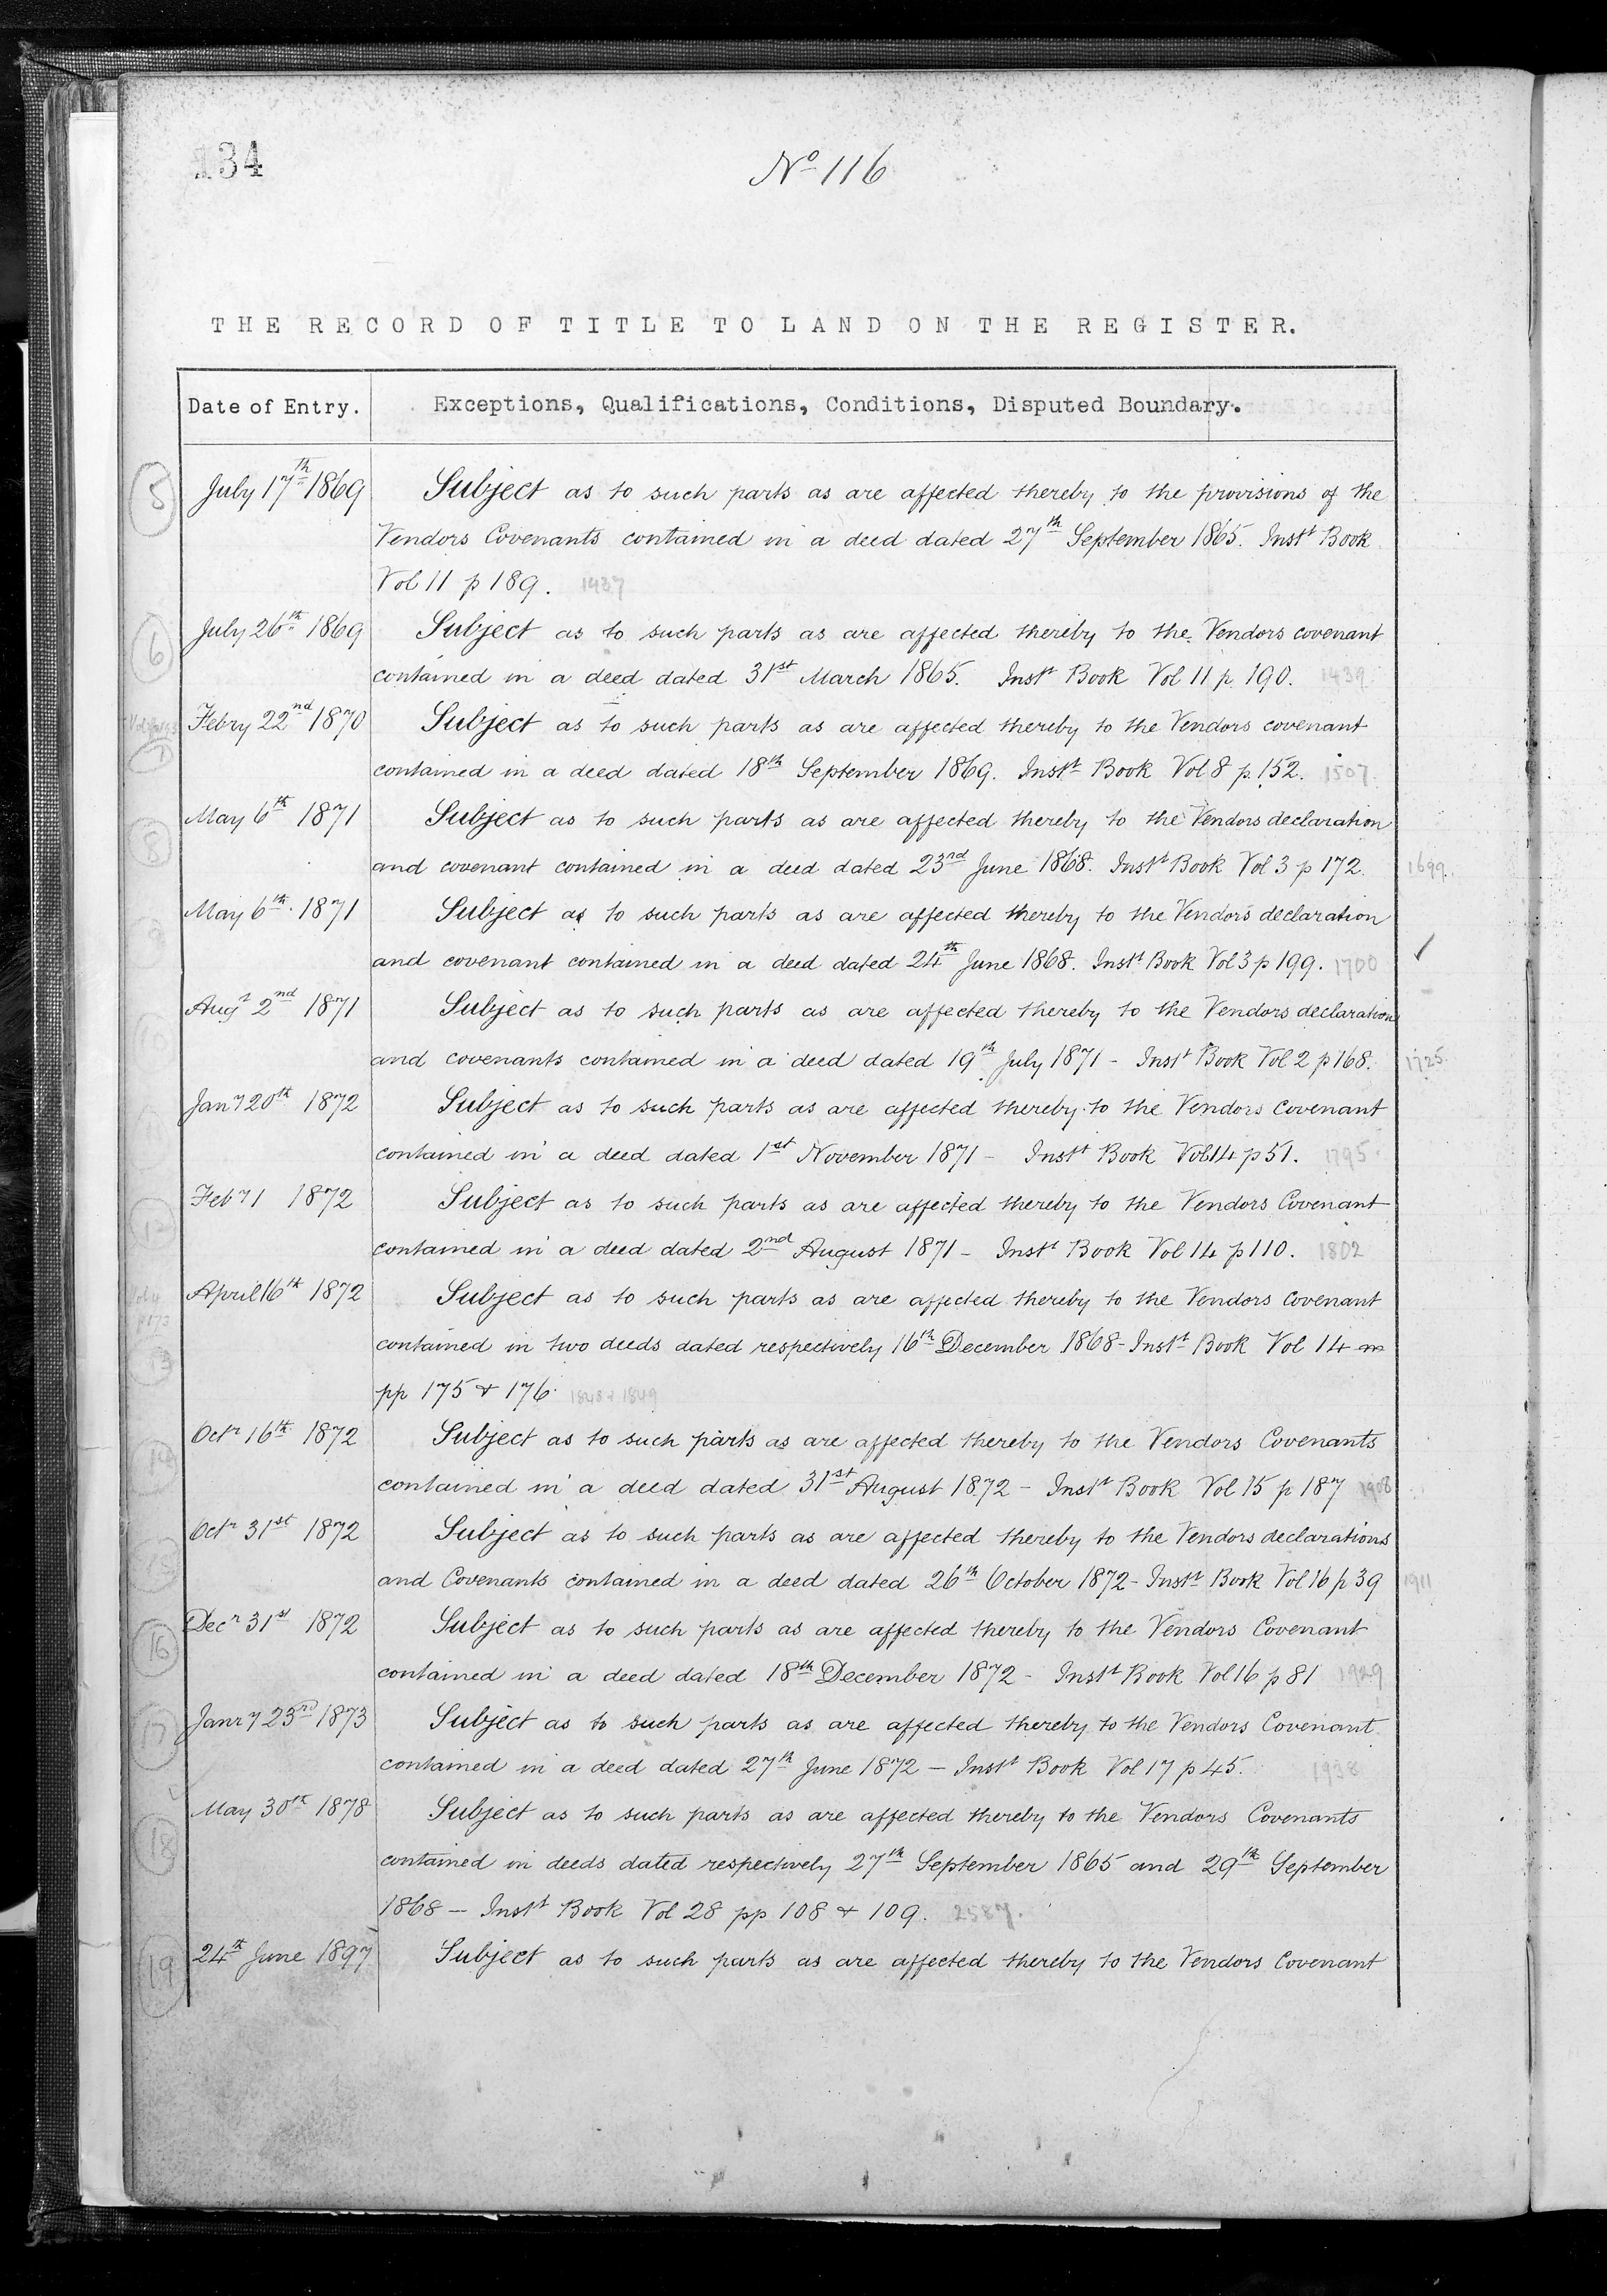 134
No 116
THE RECORD OF TITLE TO LAND ON THE REGISTER.
Date of Entry. Exceptions, Qualifications, Conditions, Disputed Boundary.
5 July 17th 1869 Subject as to such parts as are affected thereby to the provisions of the
Vendors Covenants contained in a deed dated 27th September 1865. Instt Book
Vol 11 p 189. 1437
6 July 26th 1869 Subject as to such parts as are affected thereby to the Vendors covenant
contained in a deed dated 31st March 1865. Instt Book Vol 11 p. 190. 1439
Febry 22nd 1870 Subject as to such parts as are affected thereby to the Vendors covenant
contained in a deed dated 18th September 1869. Instt Book Vol 8 p. 152. 1507
May 6th 1871 Subject as to such parts as are affected thereby to the Vendors declaration
8 and covenant contained in a deed dated 23rd June 1868. Instt Book Vol 3 p 172. 1699
May 6th 1871 Subject as to such parts as are affected thereby to the Vendors declaration
and covenant contained in a deed dated 24th June 1868. Instt Book Vol 3 p 199. 1700
Augt 2nd 1871 Subject as to such parts as are affected thereby to the Vendors declaration
and covenants contained in a deed dated 19th July 1871 - Instt Book Vol 2 p 168. 1725
Jany 20th 1872 Subject as to such parts as are affected thereby to the Vendors Covenant
contained in a deed dated 1st November 1871 - Instt Book Vol 14 p 51. 1795
Feby 1 1872 Subject as to such parts as are affected thereby to the Vendors Covenant
12 contained in a deed dated 2nd August 1871 - Instt Book Vol 14 p 110. 1802
April 16th 1872 Subject as to such parts as are affected thereby to the Vendors Covenant
13 contained in two deeds dated respectively 16th December 1868 - Instt Book Vol 14
pp 175 & 176. 1848 & 1849
Octr 16th 1872 Subject as to such parts as are affected thereby to the Vendors Covenants
14 contained in a deed dated 31st August 1872 - Instt Book Vol 15 p 187 1908
Octr 31st 1872 Subject as to such parts as are affected thereby to the Vendors declarations
and Covenants contained in a deed dated 26th October 1872 - Instt Book Vol 16 p 39 1911
Decr 31st 1872 Subject as to such parts as are affected thereby to the Vendors Covenant
16 contained in a deed dated 18th December 1872 - Instt Book Vol 16 p 81 1929
Janry 23rd 1873 Subject as to such parts as are affected thereby to the Vendors Covenant
17 contained in a deed dated 27th June 1872 - Instt Book Vol 17 p 45. 1938
May 30th 1878 Subject as to such parts as are affected thereby to the Vendors Covenants
18 contained in deeds dated respectively 27th September 1865 and 29th September
1868 - Instt Book Vol 28 pp 108 & 109. 2587.
19 24th June 1897 Subject as to such parts as are affected thereby to the Vendors Covenant